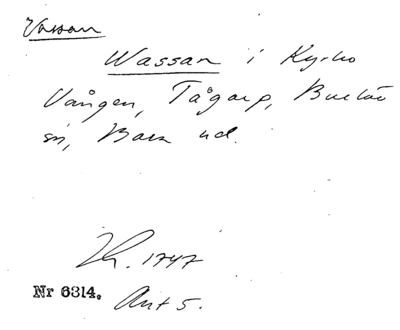 Vassan
Wassan i Kyrko
Vången, Tågarp, Burlöv
sn, Bara hd.
Th. 1747
Nr 6314. Akt 5.